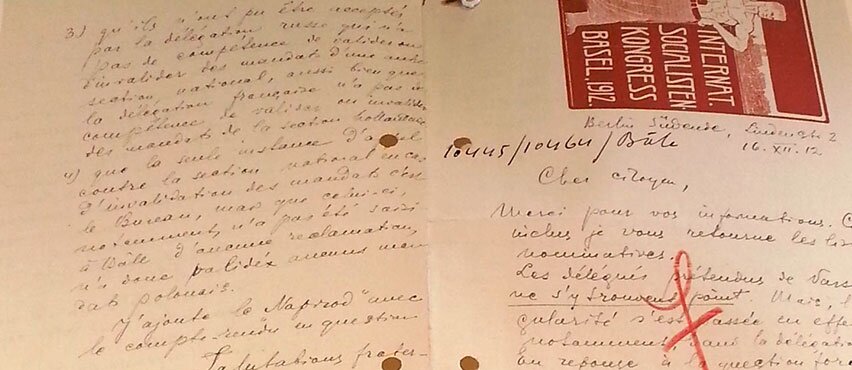 3.) qu'ils n'ont pu être acceptés
par la délégation russe qui n'a
pas de compétence de valider ou
d'invalider des mandats d'une autre
section national, aussi bien que
la délégation française n'a pas
compétence de valider ou invalider
des mandats de la section hollandaise
4) que la seule instance d'appel
contre la section national en cas
d'invalidation des mandats c'est
le Bureau, mais que celui-ci,
notamment, n'a pas été saisi
à Bâle d'aucune reclamation,
n'a donc validé aucuns man-
dats polonais.
J'ajoute le "Naprzod" avec
le compte-rendu en question
Salutations frater-
INTERNAT.
SOCIALISTEN
KONGRESS
BASEL 1912
Berlin Südende, Lindenstr 2
16. XII. 12
10445/10464/Bâle
Cher citoyen,
Merci pour vos informations.
inclus je vous retourne les
nominatives.
Les délégués prétendus de
ne s'y trouvent point. Mais,
s'est passée en
notamment dans la
En réponse à la question